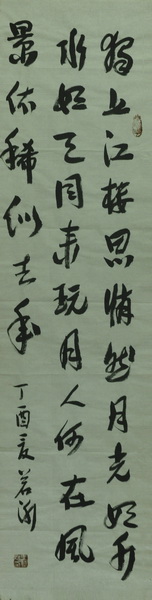 獨上江樓思悄然月光如水
水如天同來玩月人何在風
景依稀似去年 丁酉夏